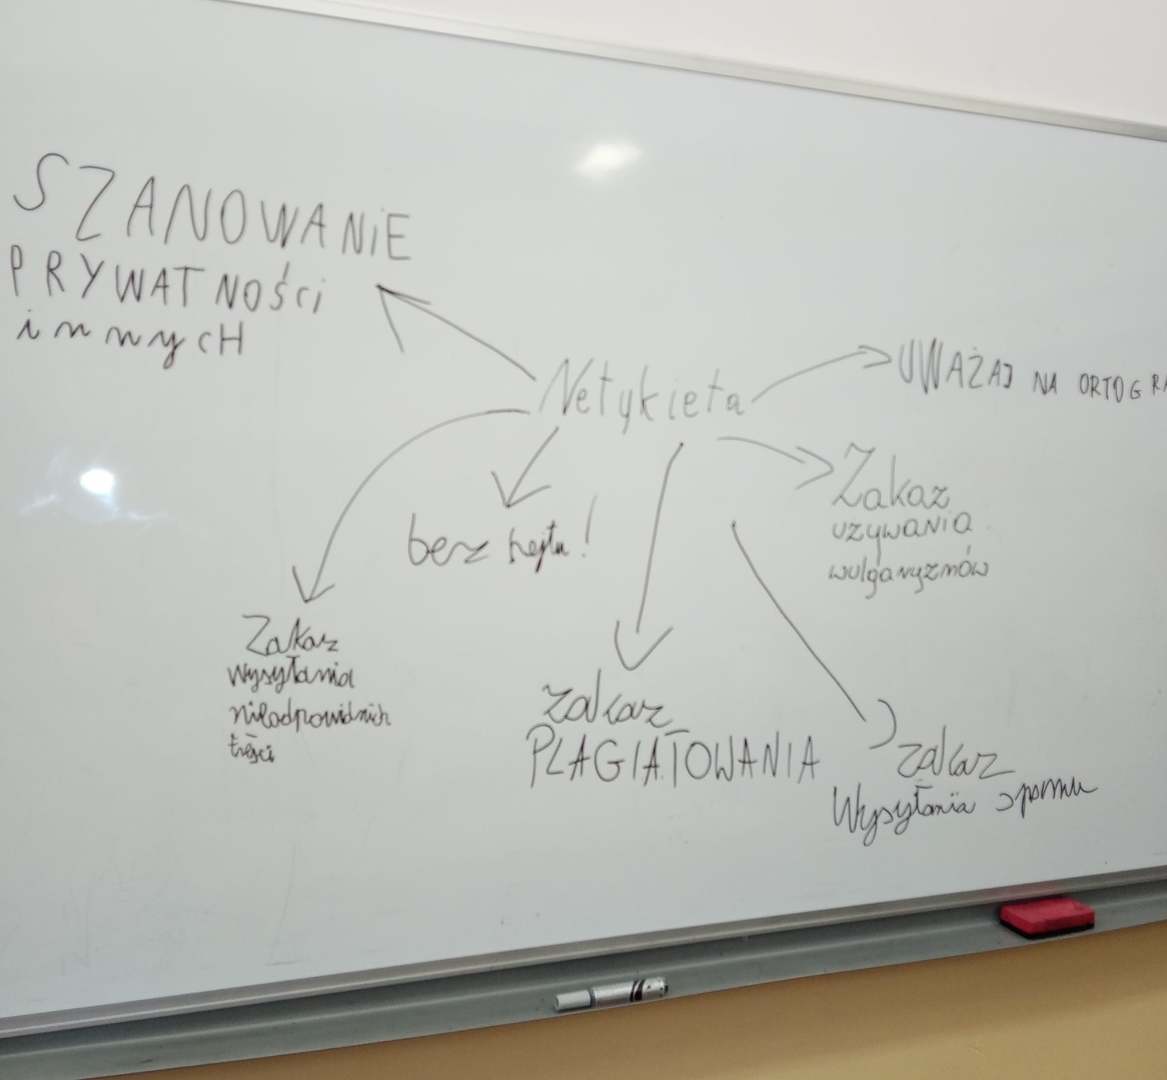 SZANOWANiE
PRYWATNOŚci
innychH
Netykieta
UWAŻAJ NA ORTOGRA
Zakaz
używania
wulgaryzmów
bez hejtu!
Zakaz
wysyłania
nieodpowidnich
treści
zakaz
PLAGIATOWANIA
zakaz
Wysyłania spamu